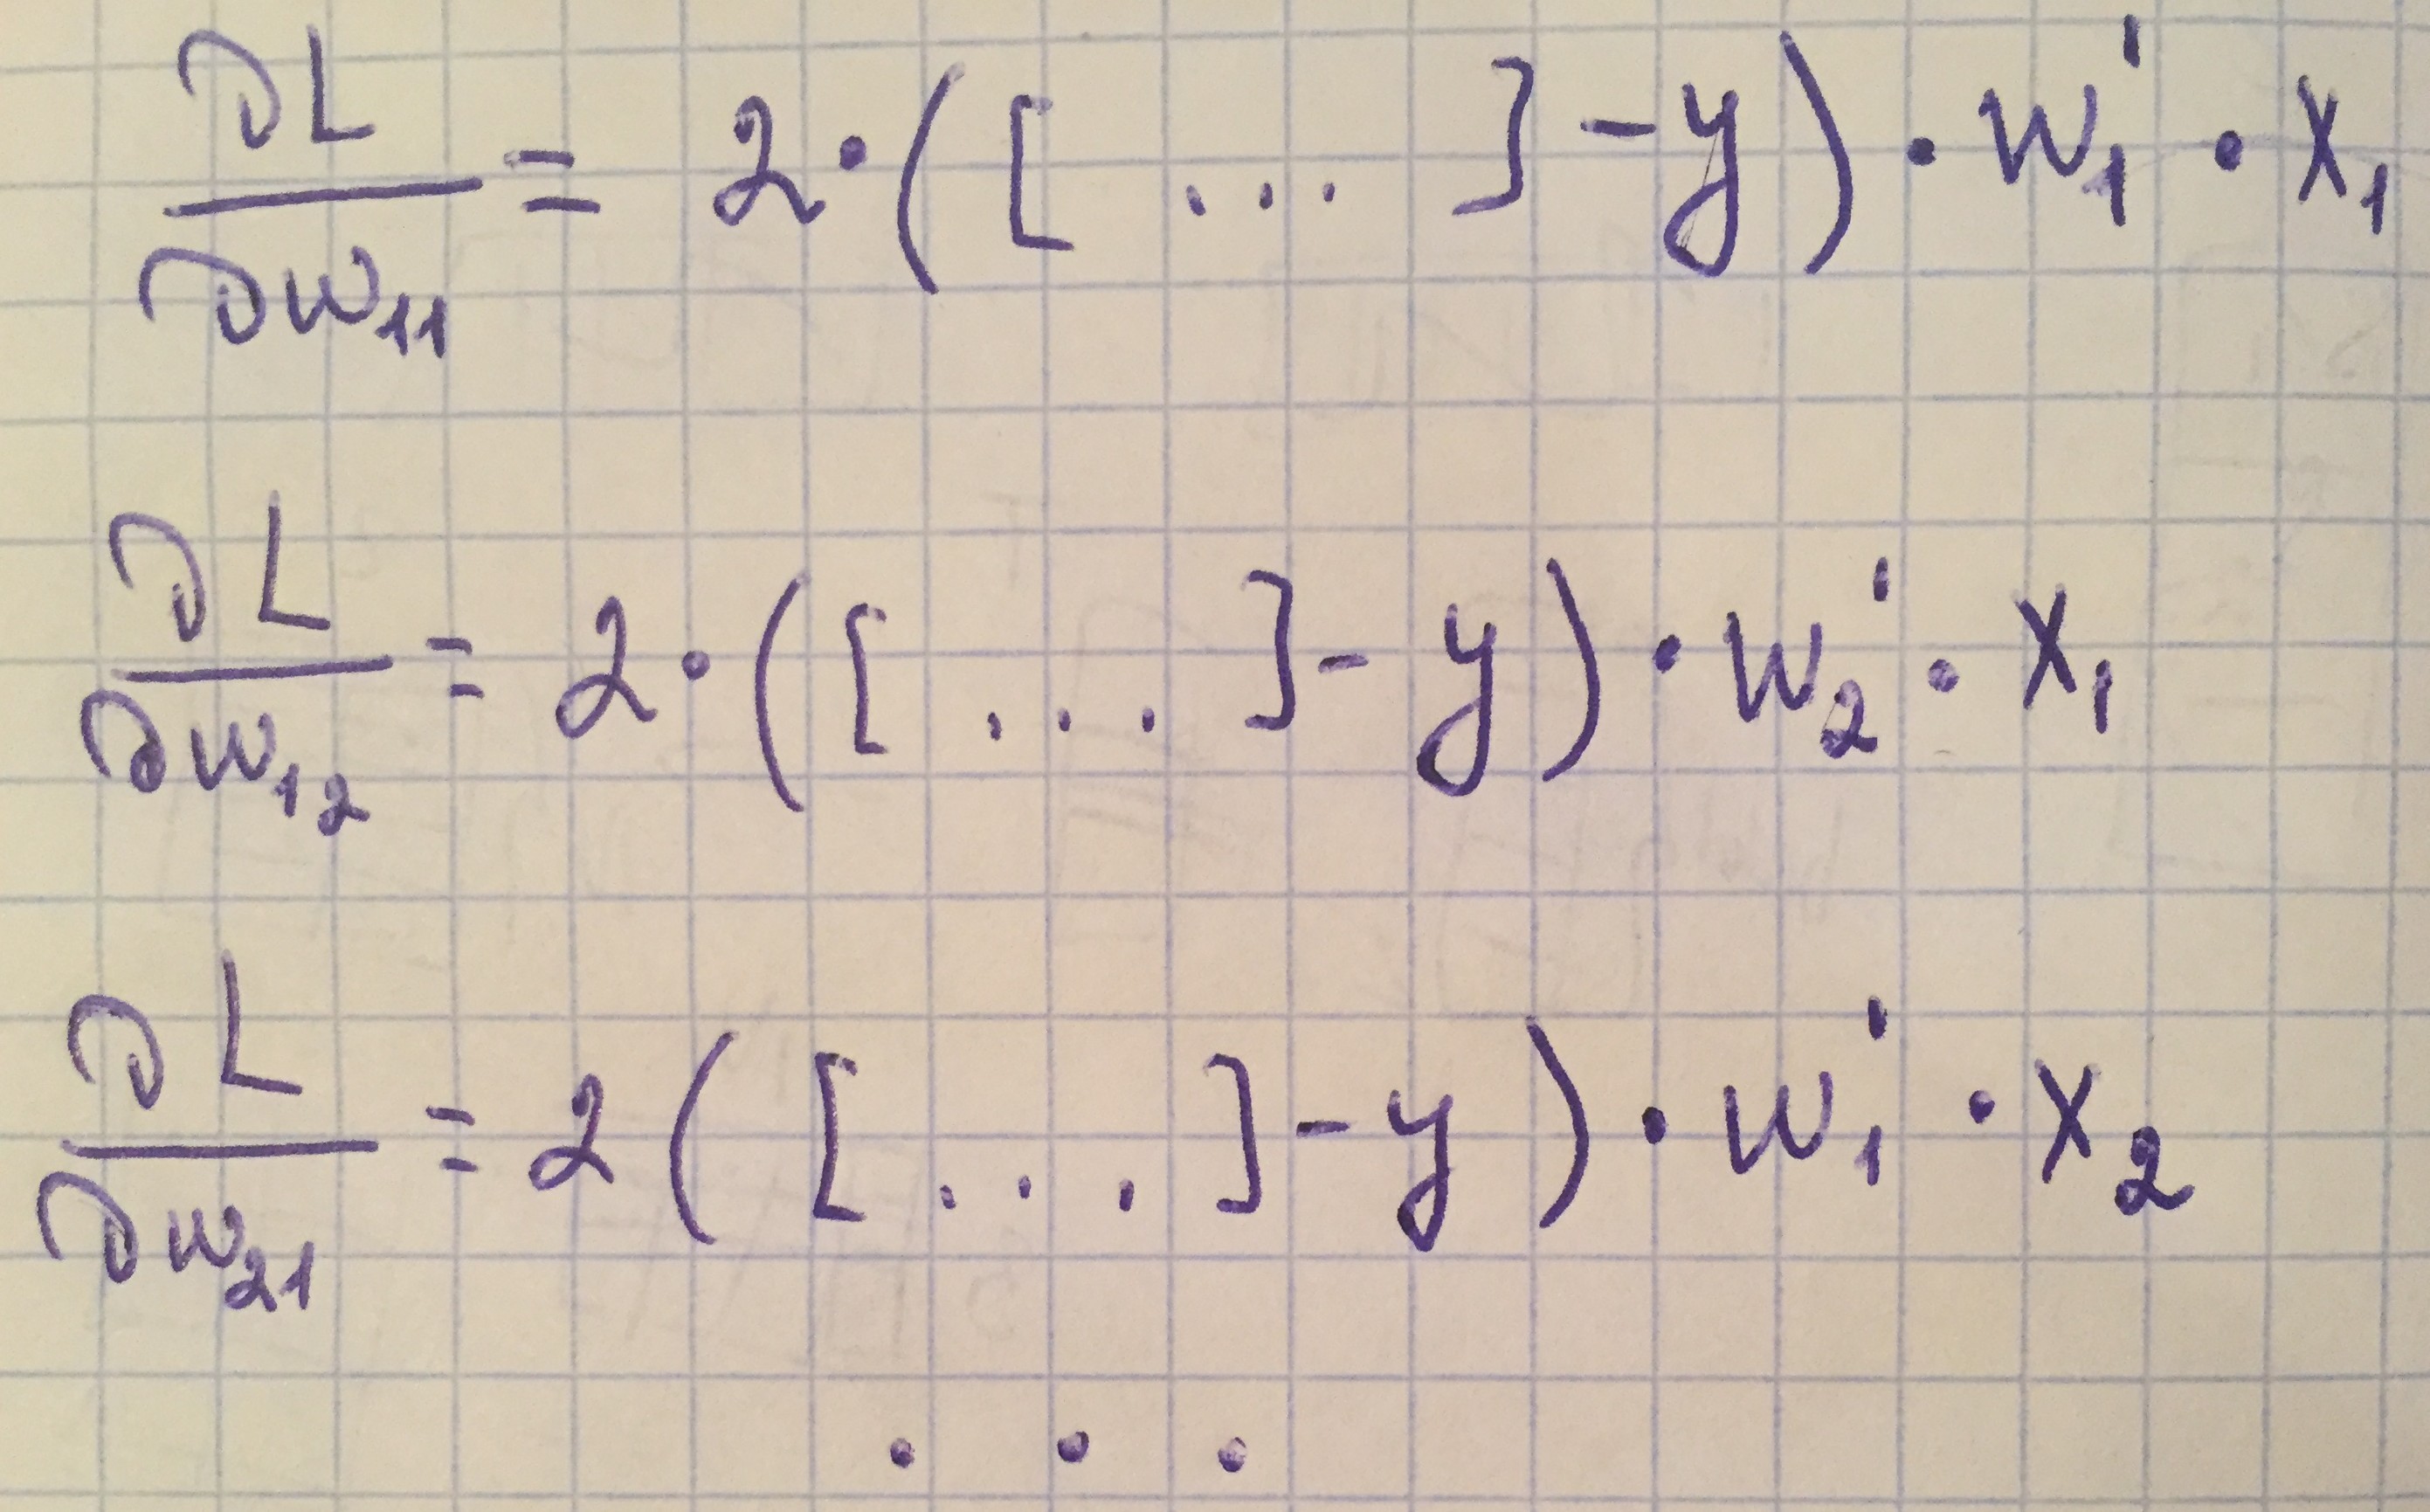 ∂L/∂w₁₁ = 2·([ ... ]-y)·w₁'·x₁
∂L/∂w₁₂ = 2·([ ... ]-y)·w₂'·x₁
∂L/∂w₂₁ = 2([ ... ]-y)·w₁'·x₂
. . .